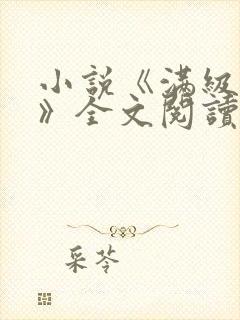 小説《满级
》全文閱讀
采苓